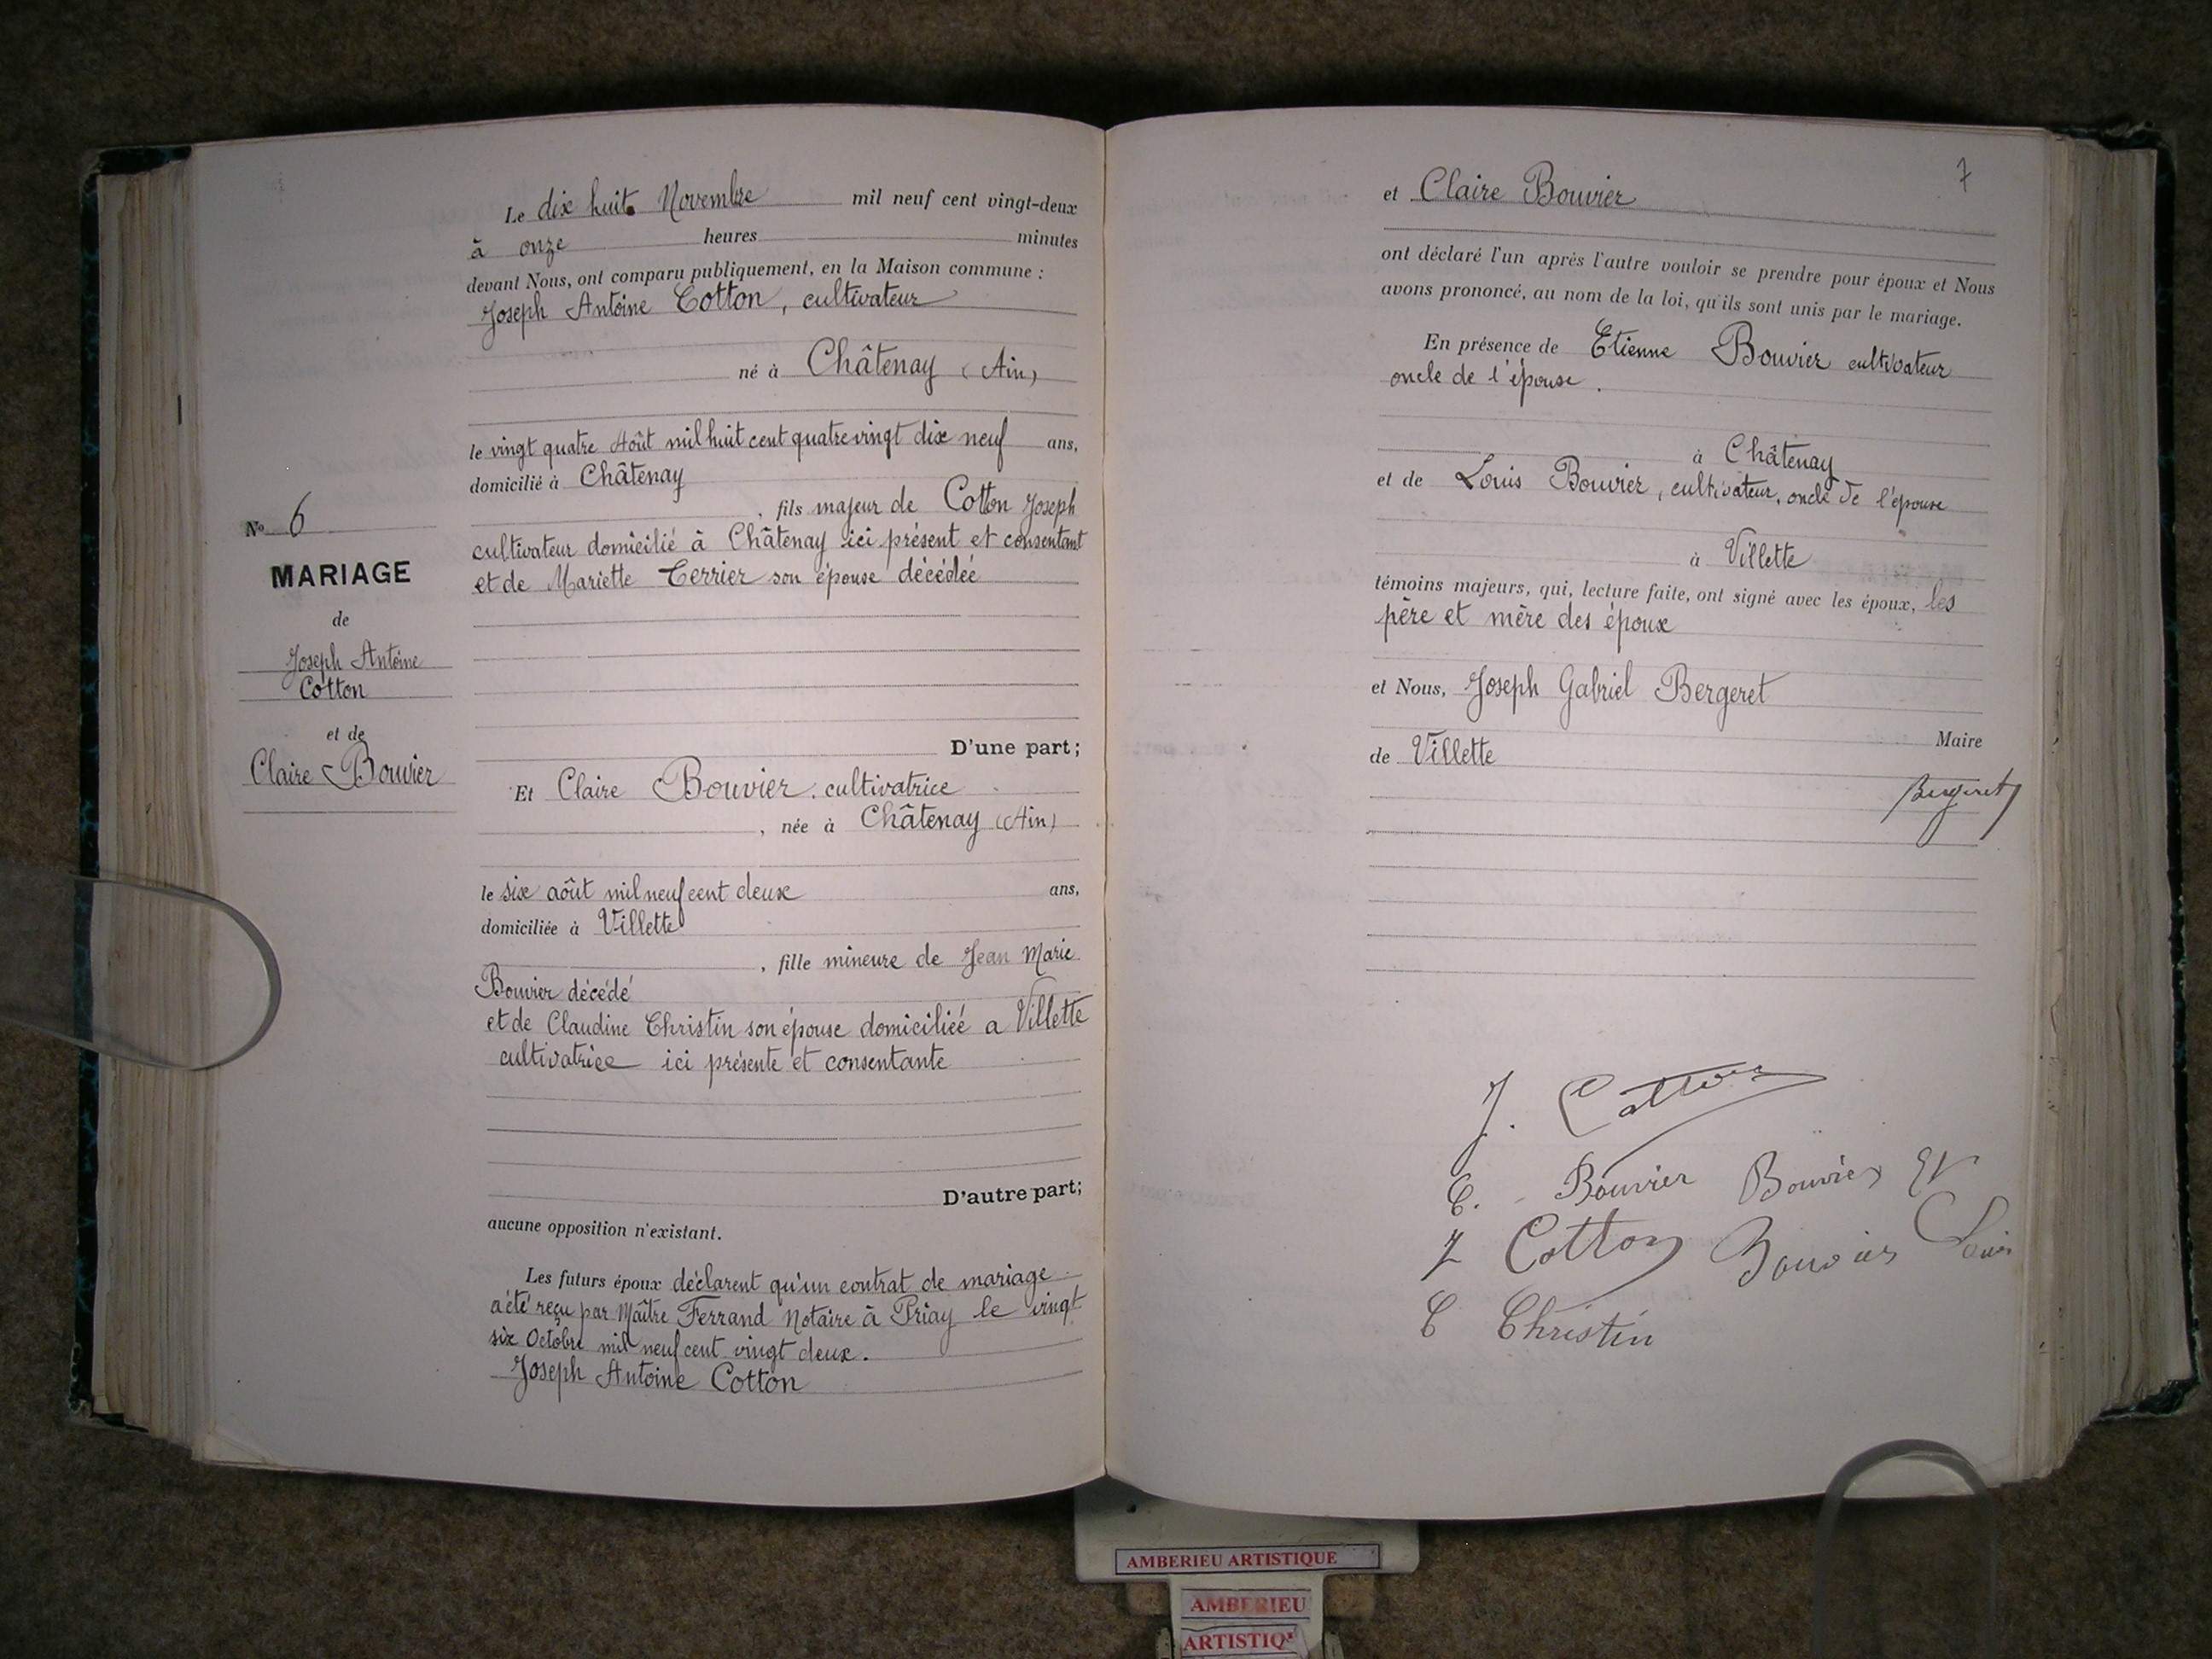 Le dix huit Novembre mil neuf cent vingt-deux
à onze heures minutes
devant Nous, ont comparu publiquement, en la Maison commune :
Joseph Antoine Cotton, cultivateur
né à Châtenay (Ain)
le vingt quatre Août mil huit cent quatre vingt dix neuf ans,
domicilié à Châtenay
, fils majeur de Cotton Joseph
cultivateur domicilié à Châtenay ici présent et consentant
et de Mariette Terrier son épouse décédée
D'une part;
N° 6
MARIAGE
de
Joseph Antoine
Cotton
et de
Claire Bouvier
Et Claire Bouvier. cultivatrice
, née à Châtenay (Ain)
le six août mil neuf cent deux ans,
domiciliée à Villette
, fille mineure de Jean Marie
Bouvier décédé
et de Claudine Christin son épouse domiciliée a Villette
cultivatrice ici présente et consentante
D'autre part;
aucune opposition n'existant.
Les futurs époux déclarent qu'un contrat de mariage
a été reçu par Maître Ferrand Notaire à Priay le vingt
six Octobre mil neuf cent vingt deux.
Joseph Antoine Cotton
7
et Claire Bouvier
ont déclaré l'un après l'autre vouloir se prendre pour époux et Nous
avons prononcé, au nom de la loi, qu'ils sont unis par le mariage.
En présence de Etienne Bouvier cultivateur
oncle de l'épouse.
à Châtenay
et de Louis Bouvier, cultivateur, oncle de l'épouse
à Villette
témoins majeurs, qui, lecture faite, ont signé avec les époux, les
père et mère des époux
et Nous, Joseph Gabriel Bergeret
Maire
de Villette
Bergeret
J. Cotton
C. Bouvier Bouvier Et
J Cotton Bouvier Louis
C Christin
AMBERIEU ARTISTIQUE
AMBERIEU
ARTISTIQ